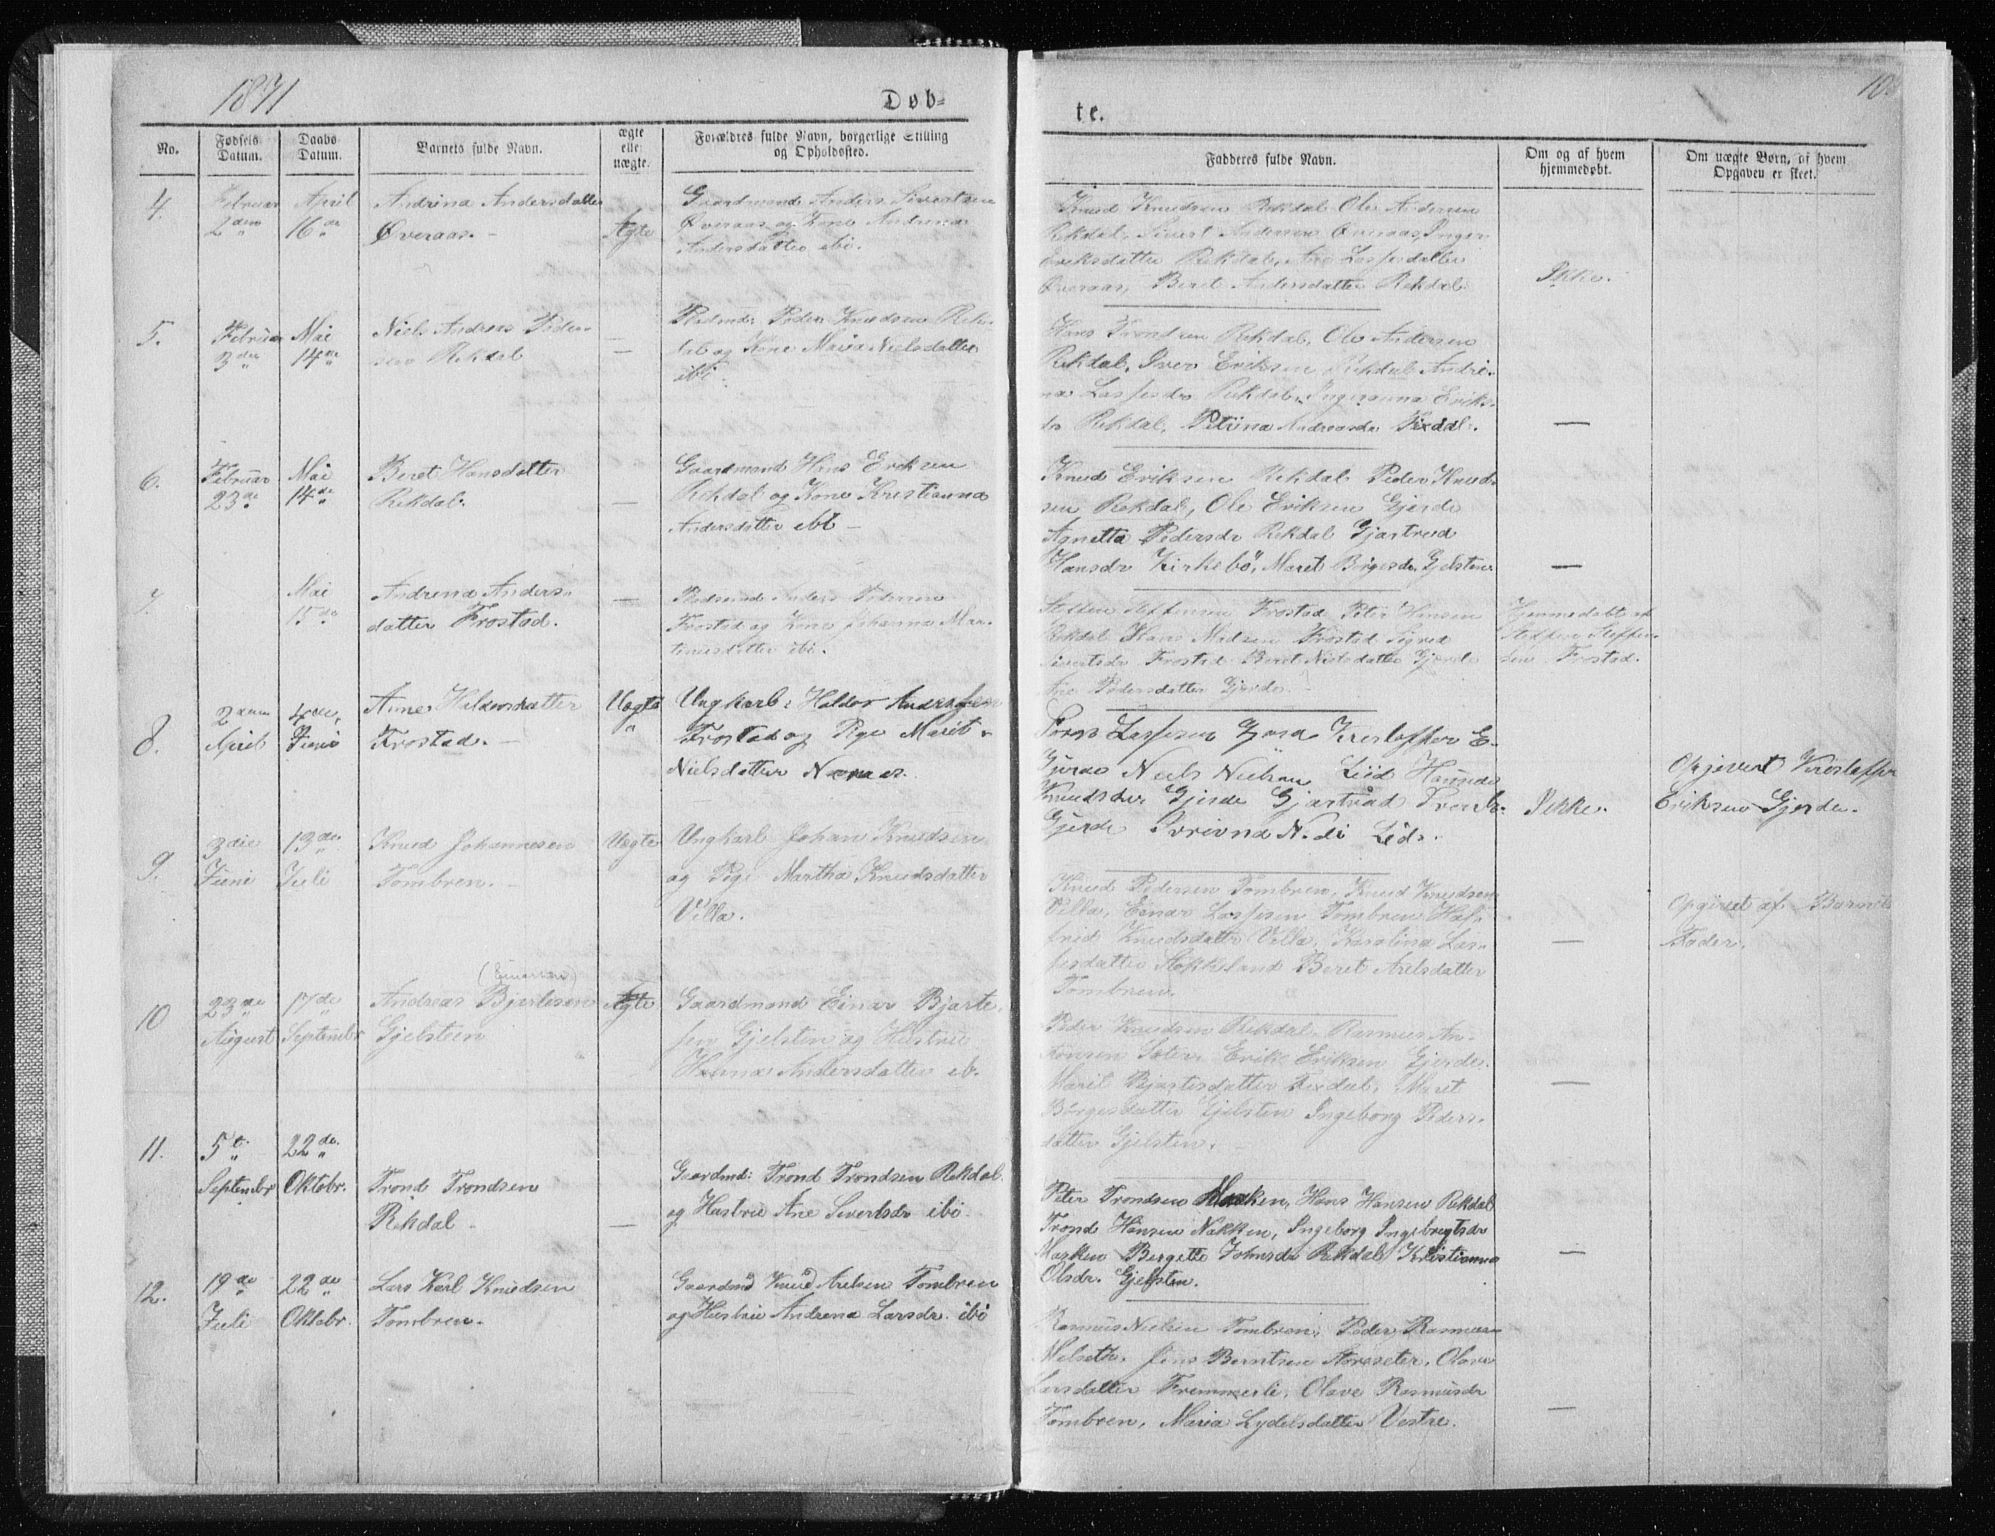 1871
Døb-
te.
10
No.
Fødsels Datum.
Daabs Datum.
Barnets fulde Navn.
ægte eller uægte.
Forældres fulde Navn, borgerlige Stilling og Opholdssted.
Fadderes fulde Navn.
Om og af hvem hjemmedøbt.
Om uægte Børn, af hvem Opgaven er skeet.
4.
Februar
2den
April
16de
Andrina Andersdatter
Øveraas.
Ægte
Gaardmand Anders Sivertsen
Øveraas og Kone Andrina
Andersdatter ibi.
Knud Knudsen Rekdal Ole Andersen
Rekdal, Sivert Andersen Øveraas, Inger
Eriksdatter Rekdal, Ane Lassesdatter
Øveraas, Beret Andersdatter Rekdal
Ikke.
5.
Februar
3die
Mai
14de
Niels Andreas Peder-
sen Rekdal
—
Peder Knudsen Rek-
dal og Kone Maria Nielsdatter
ibi.
Hans Trondsen Rekdal, Ole Andersen
Rekdal, Iver Eriksen Rekdal Andri-
na Lassesdr Rekdal, Ingeranna Eriks-
dr Rekdal, Andreasdr Rekdal.
—
6.
Februar
23de
Mai
14de
Beret Hansdatter
Rekdal.
—
Gaardmand Hans Eriksen
Rekdal og Kone Kristianna
Andersdatter ibi —
Knud Eriksen Rekdal Peder Knud-
sen Rekdal, Ole Eriksen Gjerde
Agnetta Pedersdr Rekdal Gjartrud
Hansdr Kirkebø, Maret Børgesdr Gjelsten
—
7.
Mai
15de
Andrena Anders-
datter Frostad.
—
Anders Pedersen
Frostad og Kone Johanna Mar-
tinusdatter ibi.
Steffen Steffensen Frostad Peter Hansen
Rekdal Hans Madsen Frostad Sigrid
Sivertsdr Frostad Beret Nielsdatter Gjerde
Ane Pedersdatter Gjerde.
Hjemmedøbt af
Steffen Steffen-
sen Frostad.
8.
2den
April
4de
Juni
Anne Haldorsdatter
Frostad. —
Uægte
Ungkarl: Haldor Andersen
Frostad og Pige Marit
Nielsdatter
Lassesen Kristoffer E.
Gjerde Niels Nielsen Liid
Knudsdr Gjerde Gjartrud
Gjerde
Ikke.
Opgivet Kristoffer
Eriksen Gjerde.
9.
3die
Juni
13de
Juli
Knud Johannesen
Tombren. —
Uægte
Ungkarl Johan Knudsen
og Pige Martha Knudsdatter
Villa.
Knud Pedersen Tombren, Knud Knudsen
Villa, Einar Lassesen Tombren Hal-
frid Knudsdatter Villa, Karolina Las-
sesdatter Stokkeland Beret Axelsdatter
Tombren.
—
Opgivet af Barnets
Fader.
10
23de
August
17de
September
(Einarsen)
Andreas Bjartesen
Gjelsteen
Ægte
Gaardmand Einar Bjarte-
sen Gjelsten og Hustrue
Hanna Andersdatter ib.
Peder Knudsen Rekdal, Rasmus An-
tonsen Erik Eriksen Gjerde
Marit Bjartesdatter Maret
Børgesdatter Gjelsten Ingeborg Peders-
datter Gjelsten.
—
11.
5te
Septembr
22de
Oktobr.
Trond Trondsen
Rekdal
—
Gaardmd: Trond Trondsen Rekdal
og Hustrue Ane Sivertsdr ibi.
Peter Trondsen Hans Hansen Rekdal
Trond Hansen Nakken, Ingeborg Ingebregtsdr
Bergette Johnsdr Rekdal, Kristianna
Olsdr. Gjelsten.
—
12.
19de
Juli
22de
Oktobr.
Lars Karl Knudsen
Tombren.
Gaardmd Knud Axelsen Tombren
og Hustrue Andrena Larsdr. ibi
Rasmus Nielsen Tombren, Peder Rasmussen
Jens Berntsen Olava
Larsdatter Fremmerli, Olave Rasmusdr
Tombren, Maria Lydelsdatter Vestre.
—